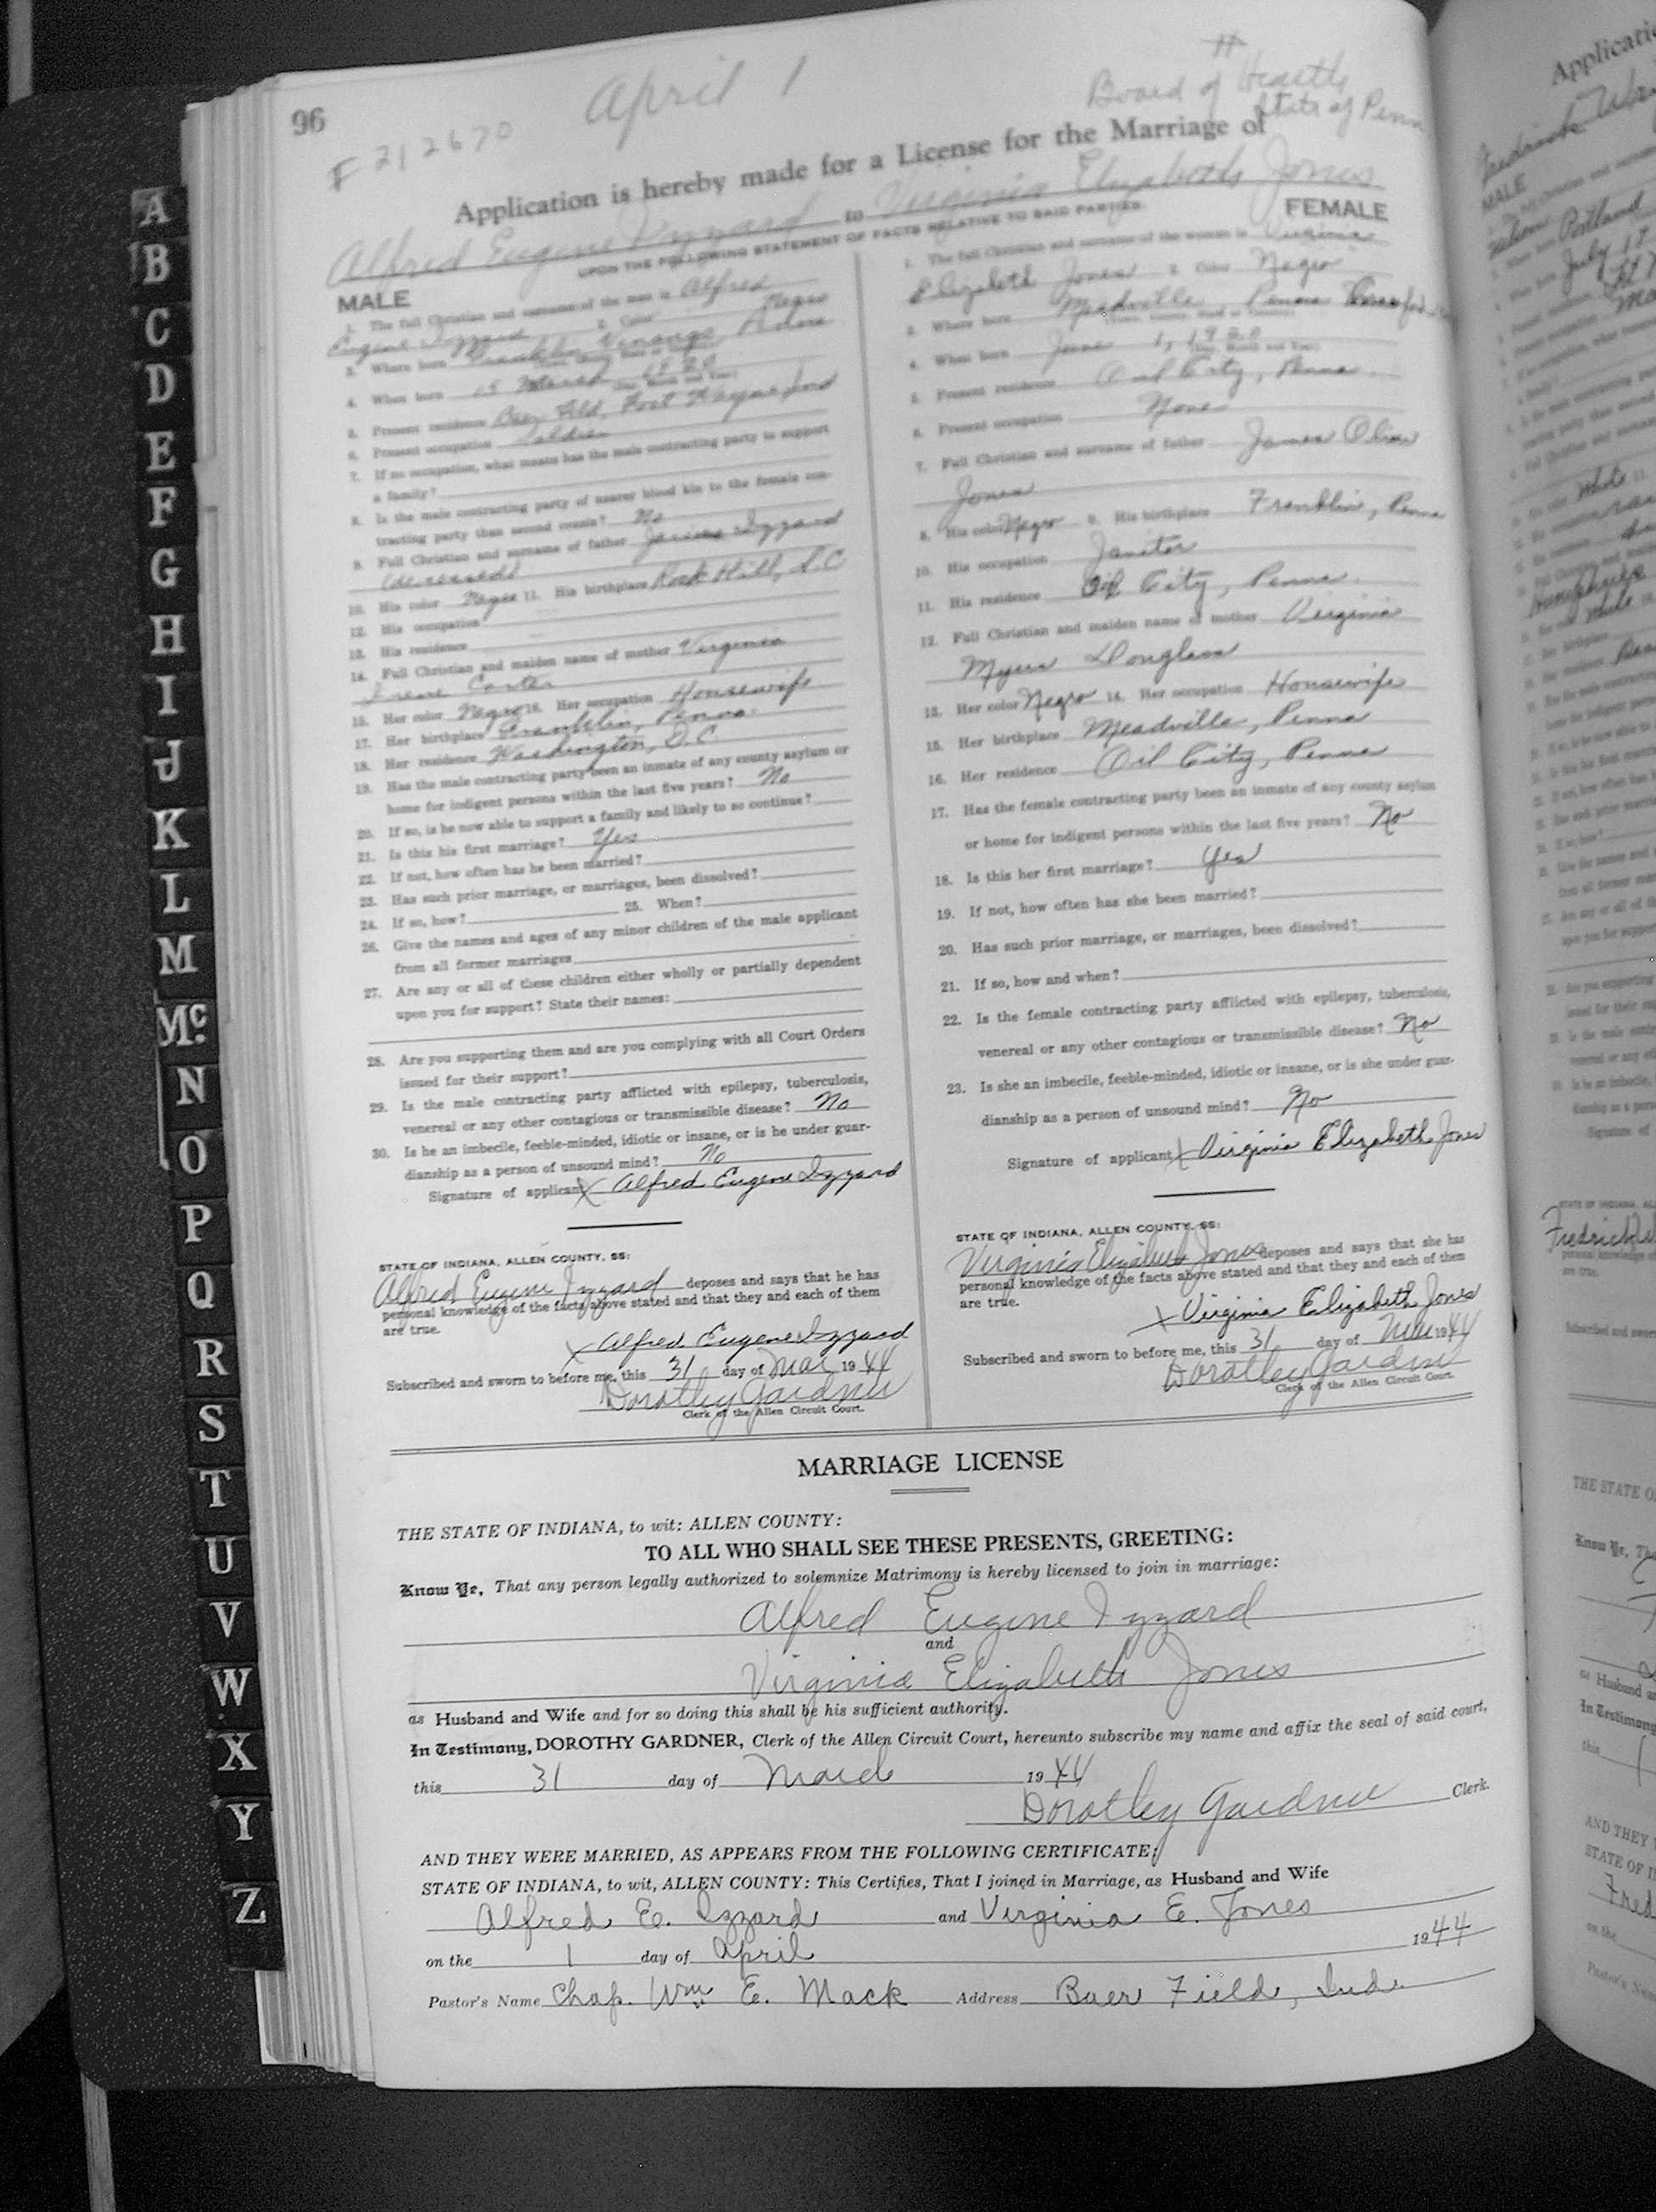 96
April 1
#
Board of Health
State of Penn
F 212670
Application is hereby made for a License for the Marriage of
Alfred Eugene Izzard to Virginia Elizabeth Jones
UPON THE FOLLOWING STATEMENT OF FACTS RELATIVE TO SAID PARTIES.
MALE
1. The full Christian and surname of the man is Alfred
Eugene Izzard 2. Color Negro
3. Where born Franklin Venango Penna
(Town, County, State or Country)
4. When born 15 March 1920
(Day, Month and Year)
5. Present residence Baer Fld, Fort Wayne Ind
6. Present occupation Soldier
7. If no occupation, what means has the male contracting party to support
a family?
8. Is the male contracting party of nearer blood kin to the female con-
tracting party than second cousin? No
9. Full Christian and surname of father James Izzard
(deceased)
10. His color Negro 11. His birthplace Rock Hill, S.C
12. His occupation
13. His residence
14. Full Christian and maiden name of mother Virginia
Irene Carter
15. Her color Negro 16. Her occupation Housewife
17. Her birthplace Franklin, Penna.
18. Her residence Washington, D.C.
19. Has the male contracting party been an inmate of any county asylum or
home for indigent persons within the last five years? No
20. If so, is he now able to support a family and likely to so continue?
21. Is this his first marriage? Yes
22. If not, how often has he been married?
23. Has such prior marriage, or marriages, been dissolved?
24. If so, how? 25. When?
26. Give the names and ages of any minor children of the male applicant
from all former marriages
27. Are any or all of these children either wholly or partially dependent
upon you for support? State their names:
28. Are you supporting them and are you complying with all Court Orders
issued for their support?
29. Is the male contracting party afflicted with epilepsy, tuberculosis,
venereal or any other contagious or transmissible disease? No
30. Is he an imbecile, feeble-minded, idiotic or insane, or is he under guar-
dianship as a person of unsound mind? No
Signature of applicant X Alfred Eugene Izzard
STATE OF INDIANA, ALLEN COUNTY, SS:
Alfred Eugene Izzard deposes and says that he has
personal knowledge of the facts above stated and that they and each of them
are true.
X Alfred Eugene Izzard
Subscribed and sworn to before me, this 31 day of Mar 1944
Dorothy Gardner
Clerk of the Allen Circuit Court.
FEMALE
1. The full Christian and surname of the woman is Virginia
Elizabeth Jones 2. Color Negro
3. Where born Meadville, Penna
(Town, County, State or Country)
4. When born June 1, 1920
(Day, Month and Year)
5. Present residence Oil City, Penna.
6. Present occupation None
7. Full Christian and surname of father James Oliver
Jones
8. His color Negro 9. His birthplace Franklin, Penna
10. His occupation Janitor
11. His residence Oil City, Penna.
12. Full Christian and maiden name of mother Virginia
Myra Douglass
13. Her color Negro 14. Her occupation Housewife
15. Her birthplace Meadville, Penna
16. Her residence Oil City, Penna
17. Has the female contracting party been an inmate of any county asylum
or home for indigent persons within the last five years? No
18. Is this her first marriage? Yes
19. If not, how often has she been married?
20. Has such prior marriage, or marriages, been dissolved?
21. If so, how and when?
22. Is the female contracting party afflicted with epilepsy, tuberculosis,
venereal or any other contagious or transmissible disease? No
23. Is she an imbecile, feeble-minded, idiotic or insane, or is she under guar-
dianship as a person of unsound mind? No
Signature of applicant X Virginia Elizabeth Jones
STATE OF INDIANA, ALLEN COUNTY, SS:
Virginia Elizabeth Jones deposes and says that she has
personal knowledge of the facts above stated and that they and each of them
are true.
X Virginia Elizabeth Jones
Subscribed and sworn to before me, this 31 day of Mar 1944
Dorothy Gardner
Clerk of the Allen Circuit Court.
MARRIAGE LICENSE
THE STATE OF INDIANA, to wit: ALLEN COUNTY:
TO ALL WHO SHALL SEE THESE PRESENTS, GREETING:
Know Ye, That any person legally authorized to solemnize Matrimony is hereby licensed to join in marriage:
Alfred Eugene Izzard
and
Virginia Elizabeth Jones
as Husband and Wife and for so doing this shall be his sufficient authority.
In Testimony, DOROTHY GARDNER, Clerk of the Allen Circuit Court, hereunto subscribe my name and affix the seal of said court,
this 31 day of March 1944
Dorothy Gardner Clerk.
AND THEY WERE MARRIED, AS APPEARS FROM THE FOLLOWING CERTIFICATE;
STATE OF INDIANA, to wit, ALLEN COUNTY: This Certifies, That I joined in Marriage, as Husband and Wife
Alfred E. Izzard and Virginia E. Jones
on the 1 day of April 1944
Pastor's Name Chap. Wm E. Mack Address Baer Field, Ind.
A
B
C
D
E
F
G
H
I
J
K
L
M
Mc.
N
O
P
Q
R
S
T
U
V
W
X
Y
Z